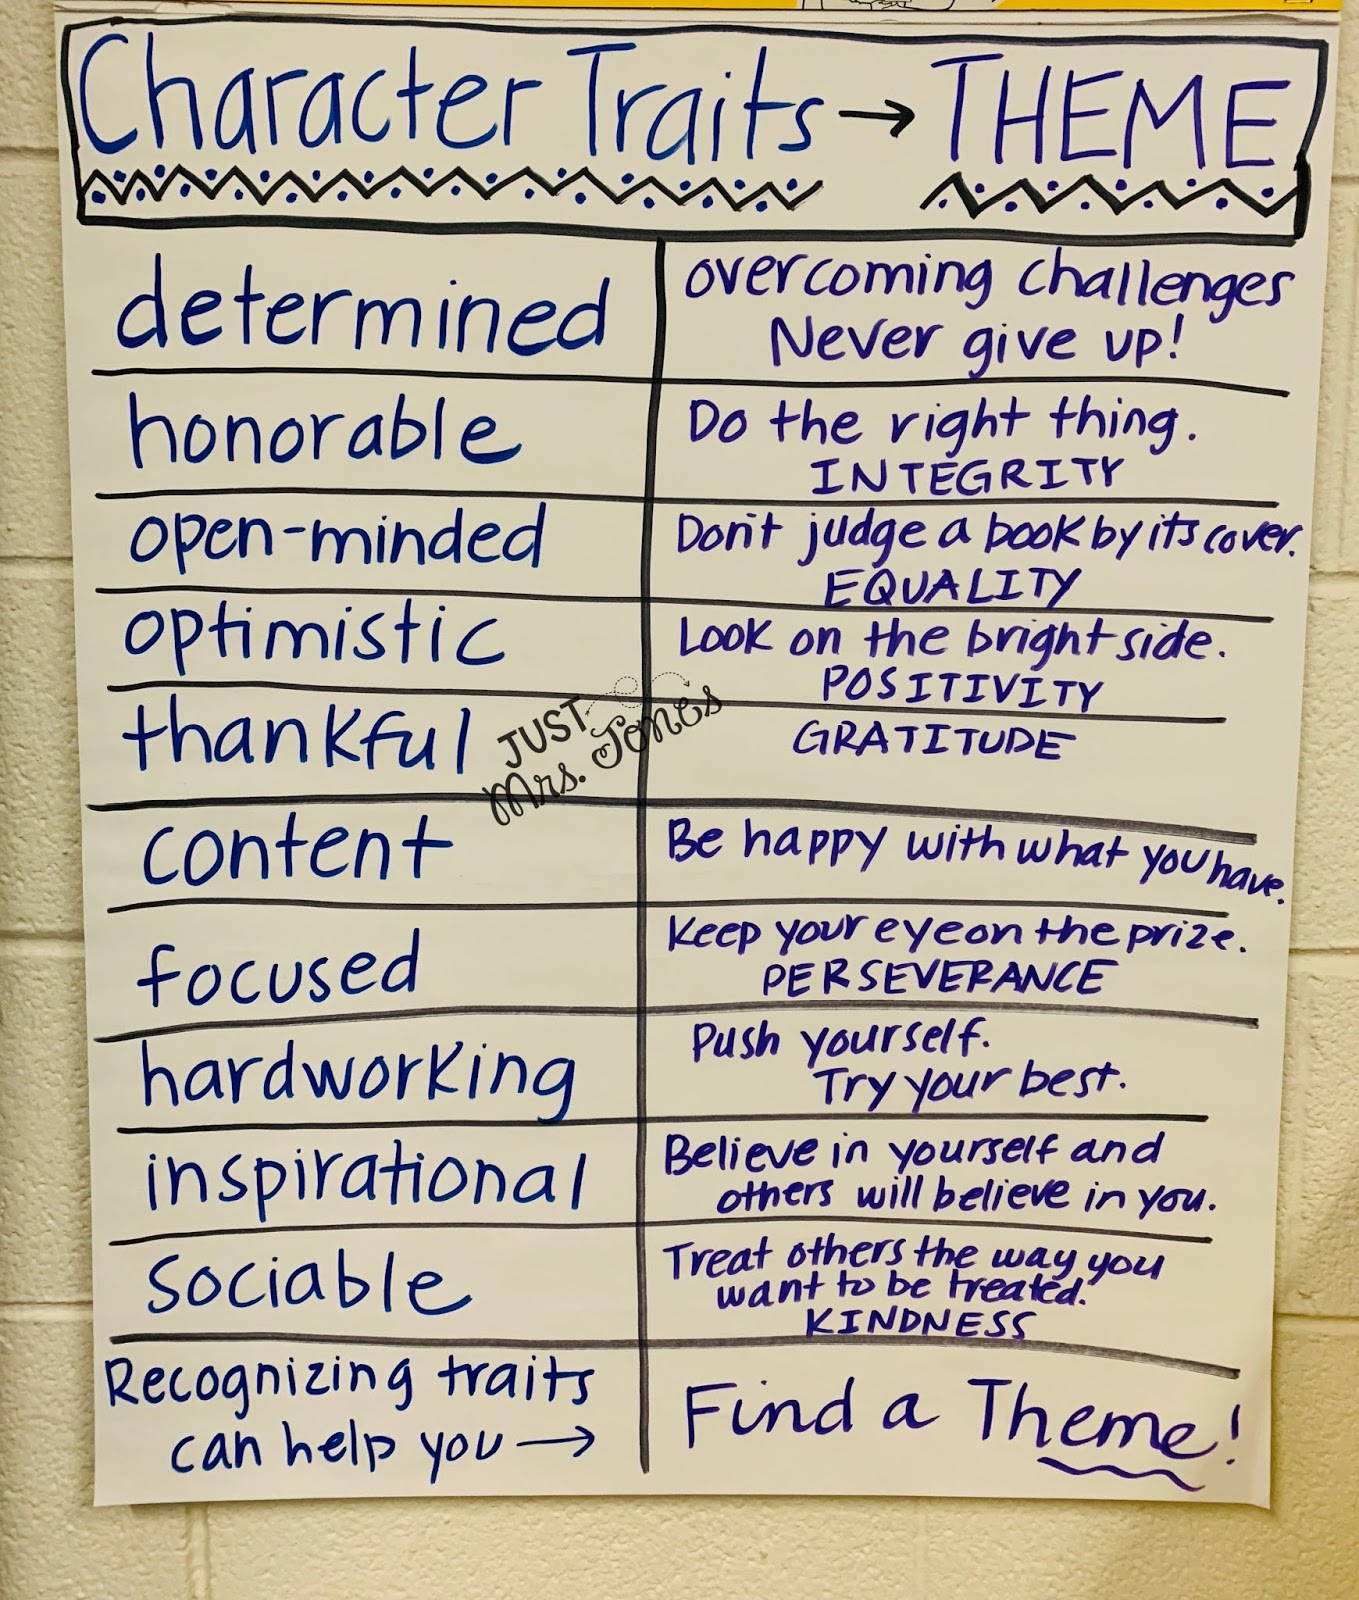 Character Traits → THEME
determined
overcoming challenges
Never give up!
honorable
Do the right thing.
INTEGRITY
open-minded
Don't judge a book by its cover.
EQUALITY
optimistic
Look on the bright side.
POSITIVITY
thankful
GRATITUDE
JUST
Mrs. Jones
content
Be happy with what you have.
focused
Keep your eye on the prize.
PERSEVERANCE
hardworking
Push yourself.
Try your best.
inspirational
Believe in yourself and
others will believe in you.
sociable
Treat others the way you
want to be treated.
KINDNESS
Recognizing traits
can help you →
Find a Theme!